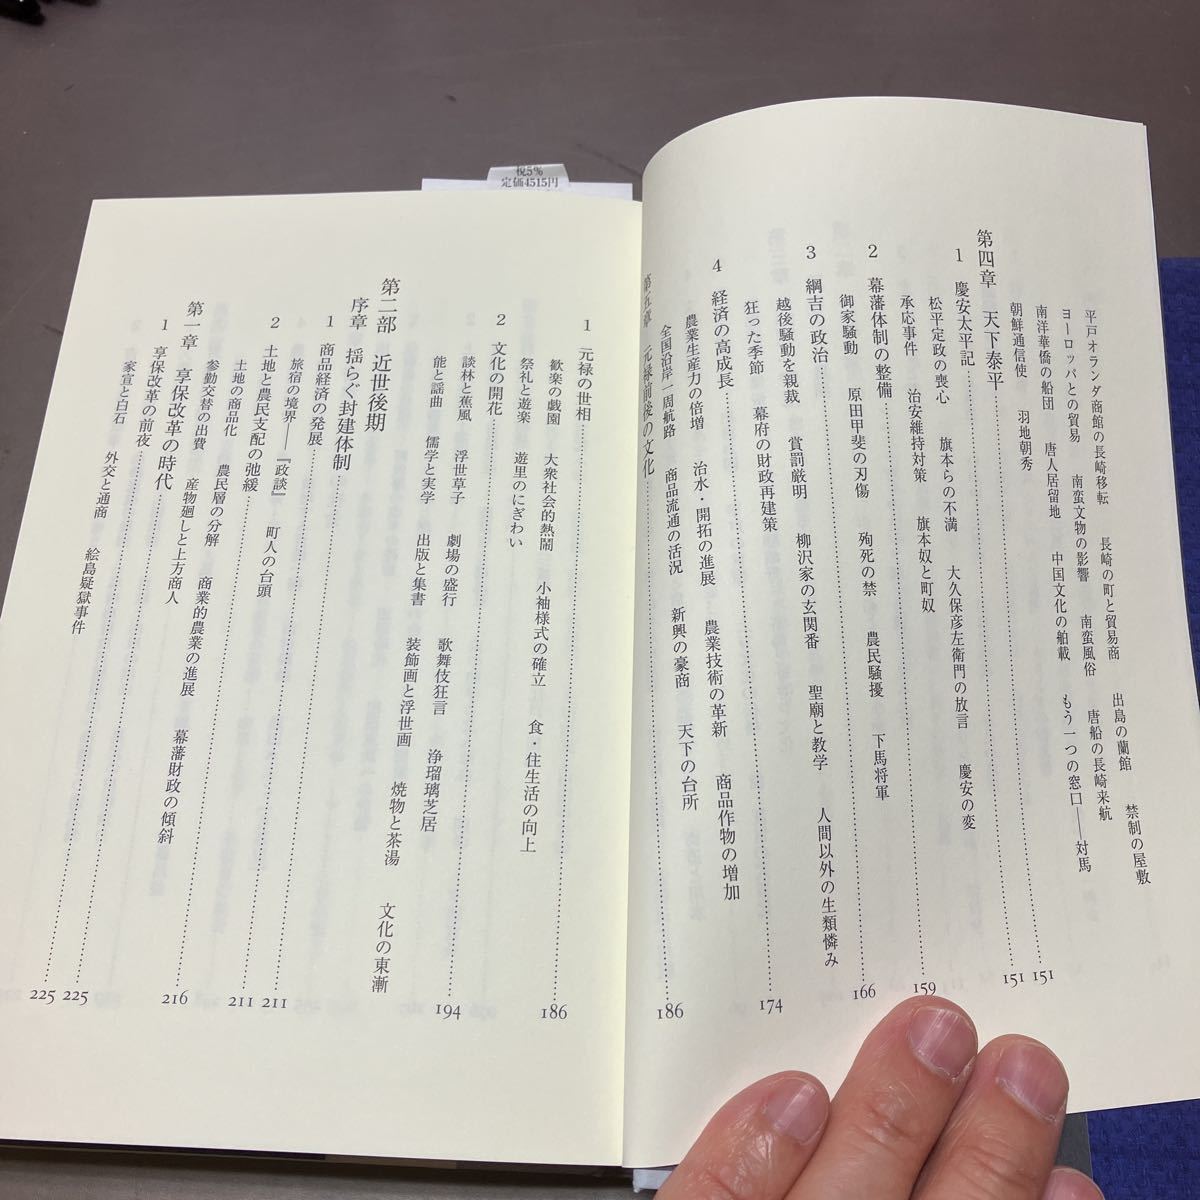 税5%
定価4515円
平戸オランダ商館の長崎移転 長崎の町と貿易商 出島の蘭館 禁制の屋敷
ヨーロッパとの貿易 南蛮文物の影響 南蛮風俗 唐船の長崎来航
南洋華僑の船団 唐人居留地 中国文化の舶載 もう一つの窓口——対馬
朝鮮通信使 羽地朝秀
第四章 天下泰平 151
1 慶安太平記 151
松平定政の喪心 旗本らの不満 大久保彦左衛門の放言 慶安の変
承応事件 治安維持対策 旗本奴と町奴
2 幕藩体制の整備 159
御家騒動 原田甲斐の刃傷 殉死の禁 農民騒擾 下馬将軍
3 綱吉の政治 166
越後騒動を親裁 賞罰厳明 柳沢家の玄関番 聖廟と教学 人間以外の生類憐み
狂った季節 幕府の財政再建策
4 経済の高成長 174
農業生産力の倍増 治水・開拓の進展 農業技術の革新 商品作物の増加
全国沿岸一周航路 商品流通の活況 新興の豪商 天下の台所
第五章 元禄前後の文化 186
1 元禄の世相 186
歓楽の戯園 大衆社会的熱鬧 小袖様式の確立 食・住生活の向上
祭礼と遊楽 遊里のにぎわい
2 文化の開花 194
談林と蕉風 浮世草子 劇場の盛行 歌舞伎狂言 浄瑠璃芝居
能と謡曲 儒学と実学 出版と集書 装飾画と浮世画 焼物と茶湯 文化の東漸
第二部 近世後期
序章 揺らぐ封建体制 211
1 商品経済の発展 211
旅宿の境界——『政談』 町人の台頭
2 土地と農民支配の弛緩 216
土地の商品化 農民層の分解 商業的農業の進展
参勤交替の出費 産物廻しと上方商人 幕藩財政の傾斜
第一章 享保改革の時代 225
1 享保改革の前夜 225
家宣と白石 外交と通商 絵島疑獄事件